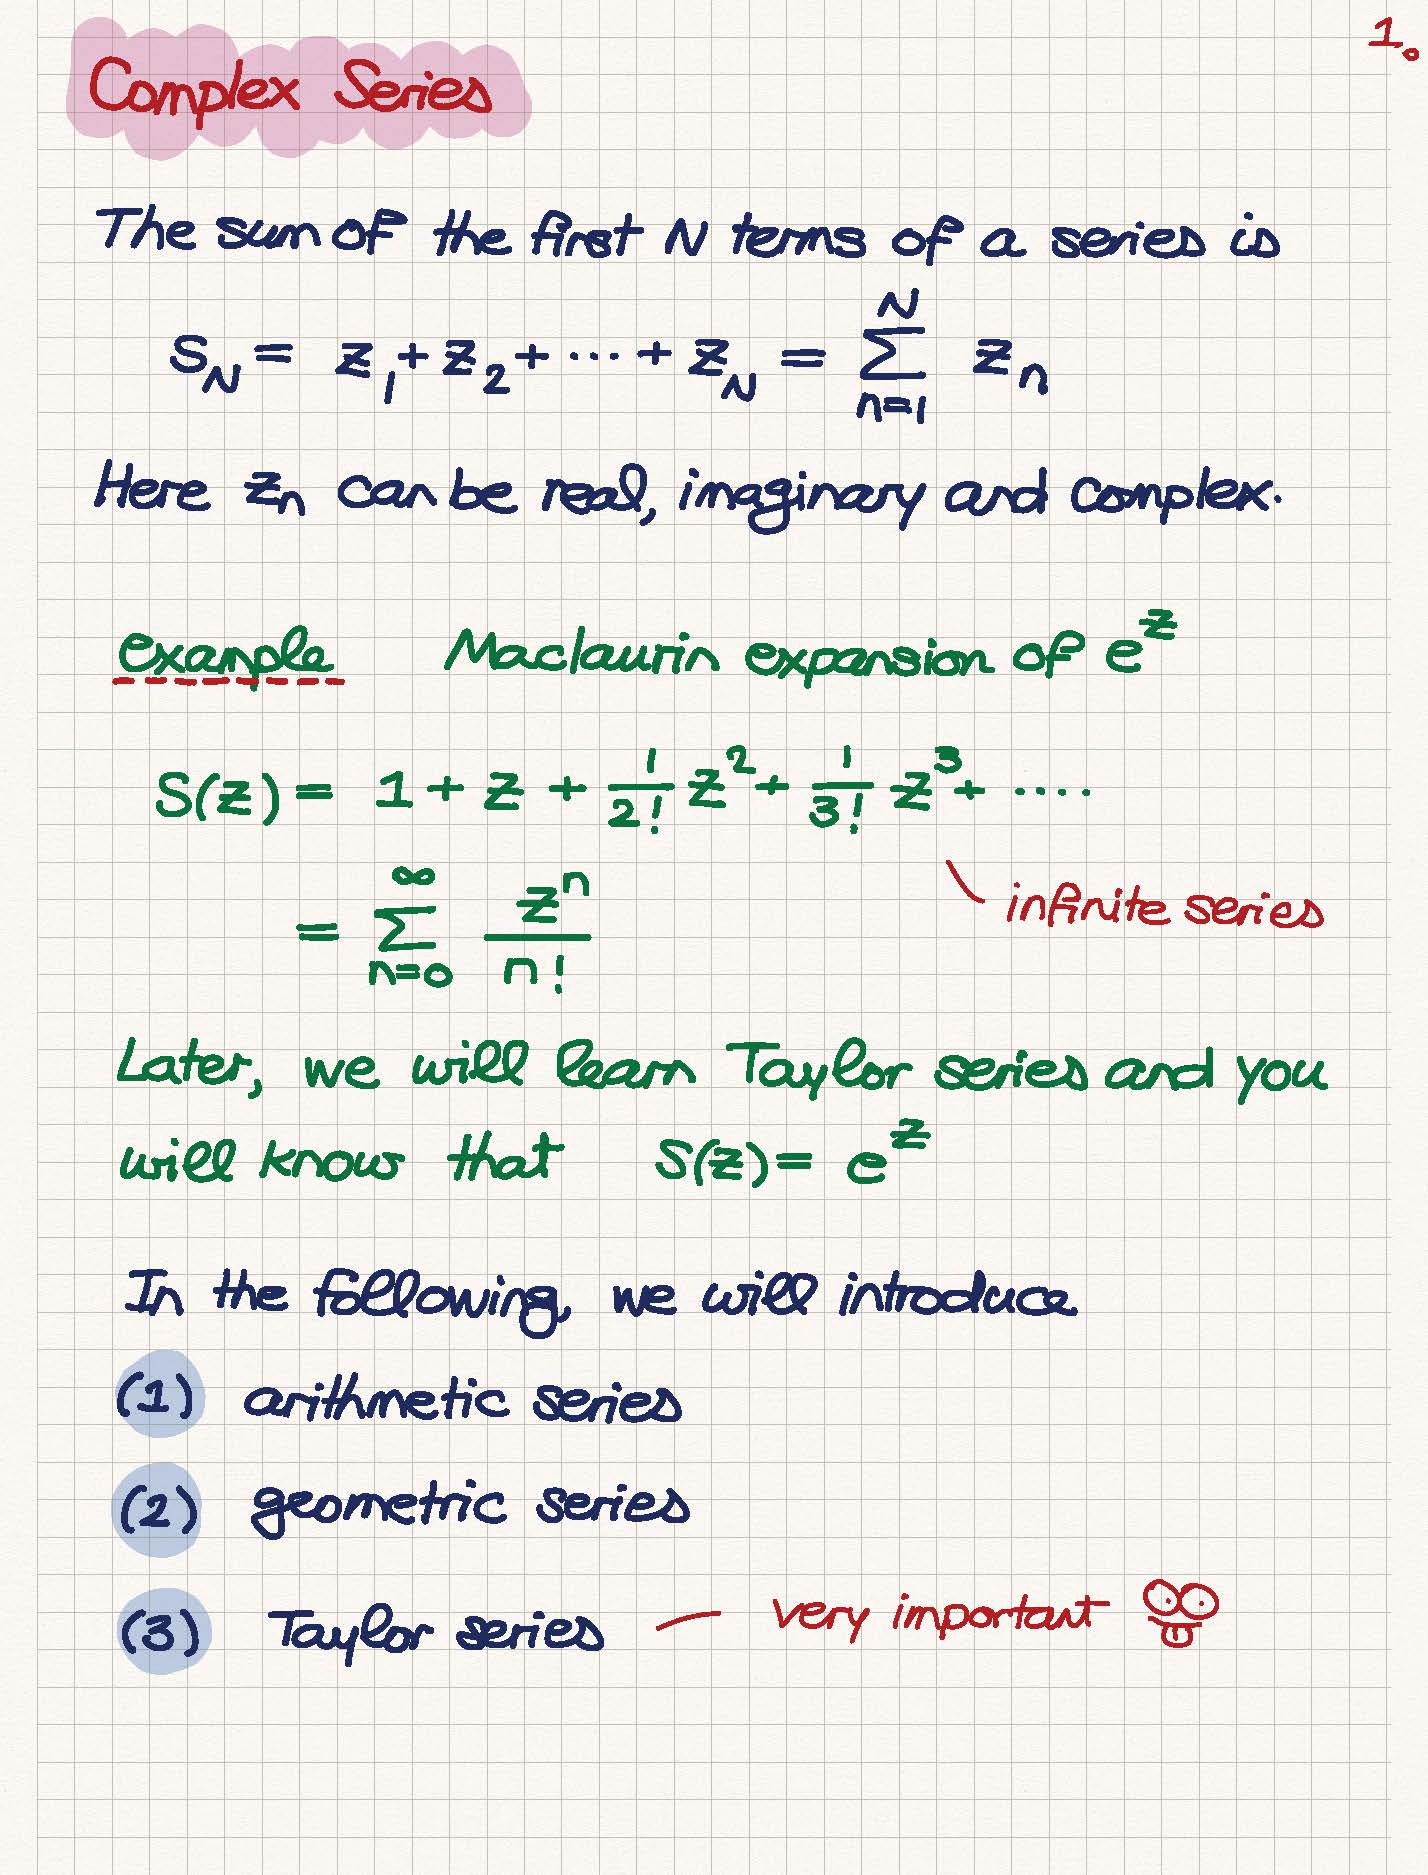 1.
Complex Series
The sum of the first N terms of a series is
S_N = z_1 + z_2 + ··· + z_N = \sum_{n=1}^{N} z_n
Here z_n can be real, imaginary and complex.
example Maclaurin expansion of e^z
S(z) = 1 + z + \frac{1}{2!} z^2 + \frac{1}{3!} z^3 + ····
infinite series
= \sum_{n=0}^{∞} \frac{z^n}{n!}
Later, we will learn Taylor series and you
will know that S(z) = e^z
In the following, we will introduce
(1) arithmetic series
(2) geometric series
(3) Taylor series — very important